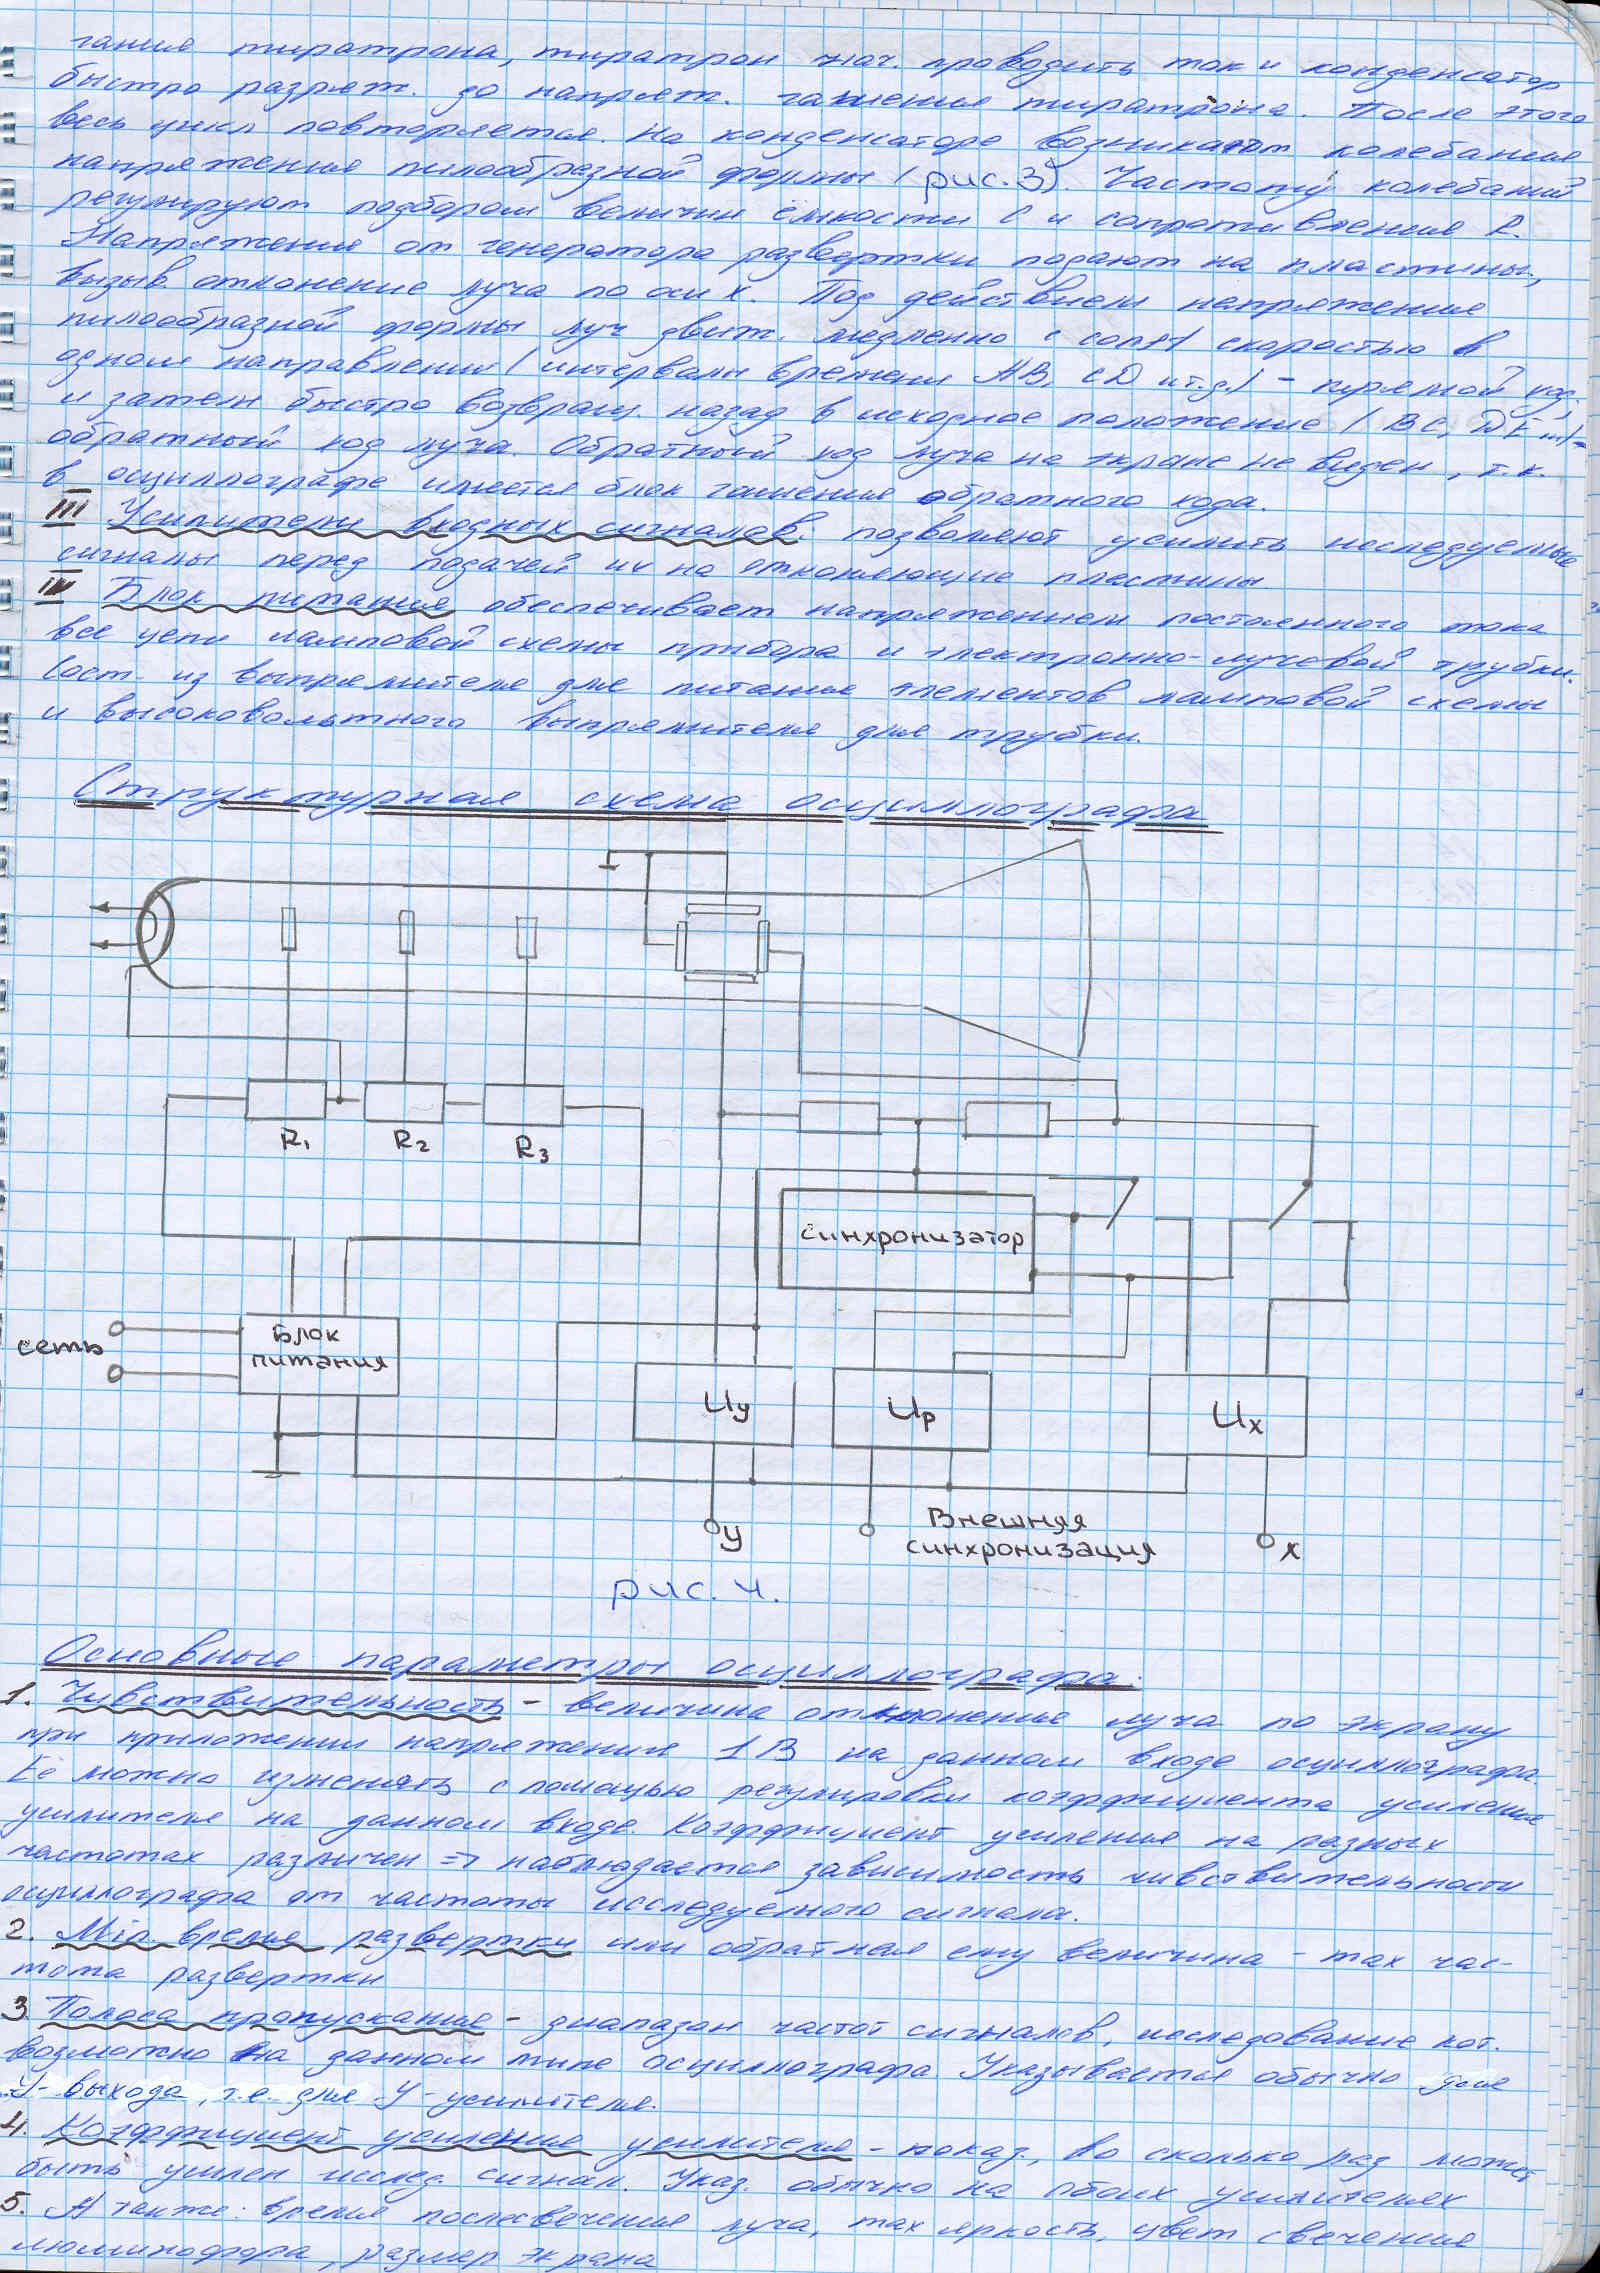 гания тиратрона, тиратрон нач. проводить ток и конденсатор
быстро разряж. до напряж. гашения тиратрона. После этого
весь цикл повторяется. На конденсаторе возникают колебания
напряжения пилообразной формы (рис.3). Частоту колебаний
регулируют подбором величин ёмкости С и сопротивления R.
Напряжение от генератора развертки подают на пластины,
вызыв отклонение луча по оси х. Под действием напряжения
пилообразной формы луч движ. медленно с const скоростью в
одном направлении (интервалы времени AB, CD и т.д.) - прямой ход,
и затем быстро возвращ. назад в исходное положение (BC, DE
обратный ход луча. Обратный ход луча на экране не виден, т.к.
в осциллографе имеется блок гашения обратного хода.
III Усилители входных сигналов: позволяют усилить исследуемые
сигналы перед подачей их на отклоняющие пластины
IV Блок питания обеспечивает напряжением постоянного тока
все цепи ламповой схемы прибора и электронно-лучевой трубки.
Сост. из выпрямителя для питания элементов ламповой схемы
и высоковольтного выпрямителя для трубки.
Структурная схема осциллографа
R1 R2 R3
синхронизатор
сеть
Блок
питания
Uy Up Ux
y
Внешняя
синхронизация
x
рис. 4.
Основные параметры осциллографа.
1. Чувствительность - величина отклонения луча по экрану
при приложении напряжения 1В на данном входе осциллографа
Её можно изменять с помощью регулировки коэффициента усиления
усилителя на данном входе. Коэффициент усиления на разных
частотах различен => наблюдается зависимость чувствительности
осциллографа от частоты исследуемого сигнала.
2. Min время развертки или обратная ему величина - max час-
тота развертки
3 Полоса пропускания - диапазон частот сигналов, исследование кот.
возможно на данном типе осциллографа Указывается обычно для
У-выхода, т.е. для У-усилителя.
4. Коэффициент усиления усилителя - показ., во сколько раз может
быть усилен исслед. сигнал. Указ. обычно на обоих усилителях
5. А также: время послесвечения луча, max яркость, цвет свечения
люминофора, размер экрана